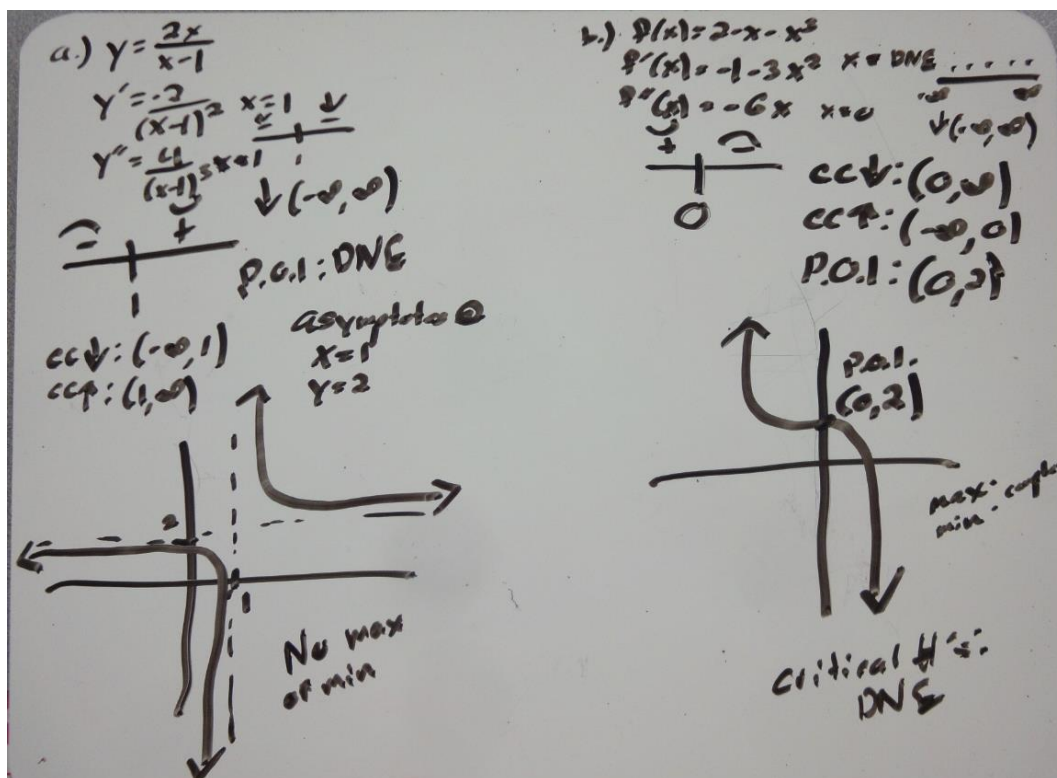 a.) y = 2x/(x-1)
y' = -2/(x-1)² x=1
- -
1
y'' = 4/(x-1)³ x=1
↓(-∞,∞)
- +
1
P.O.I: DNE
asymptotes @
x=1
y=2
cc↓: (-∞,1)
cc↑: (1,∞)
2
1
No max
or min
b.) f(x) = 2-x-x³
f'(x) = -1-3x² x = DNE
-∞ ∞
f''(x) = -6x x=0
↓(-∞,∞)
+ -
0
cc↓: (0,∞)
cc↑: (-∞,0)
P.O.I: (0,2)
P.O.I.
(0,2)
max:
min:
Critical #'s:
DNE